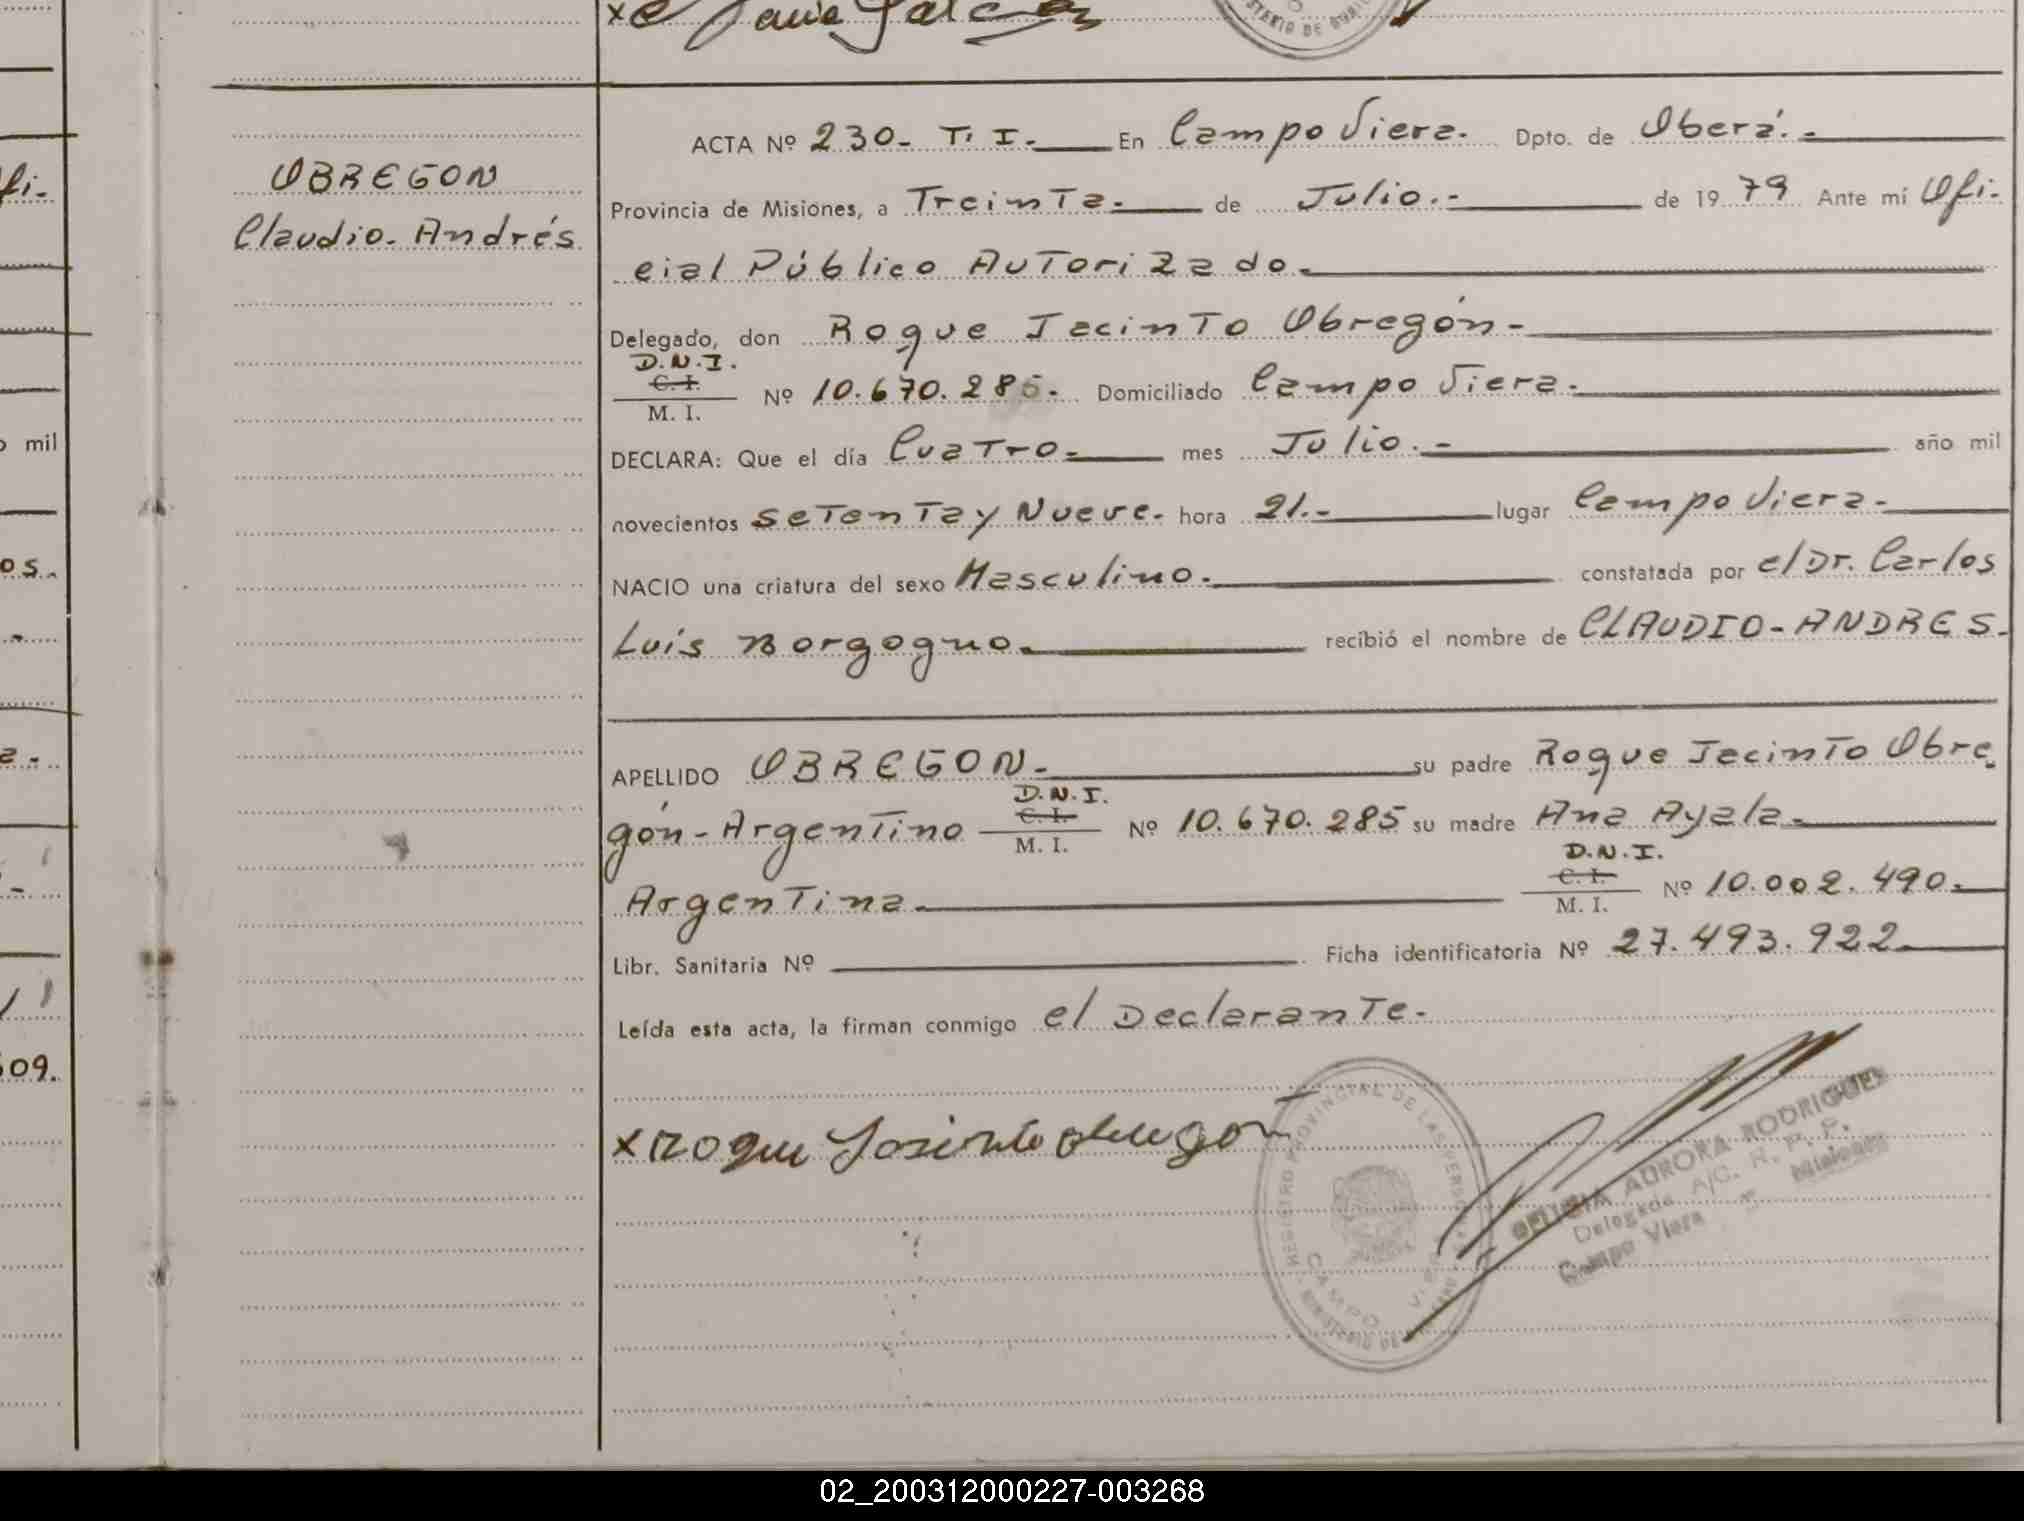 OBREGON
Claudio-Andrés
ACTA Nº 230- T. I.- En Campo Viera. Dpto. de Oberá.-
Provincia de Misiones, a Treinta.- de Julio.- de 1979 Ante mí Ofi-
cial Público Autorizado.
Delegado, don Roque Jacinto Obregón-
D.N.I.
C. I.
M. I.
Nº 10.670.285. Domiciliado Campo Viera.
DECLARA: Que el día Cuatro.- mes Julio.- año mil
novecientos Setenta y Nueve. hora 21.- lugar Campo Viera-
NACIO una criatura del sexo Masculino. constatada por el Dr. Carlos
Luis Borgogno. recibió el nombre de CLAUDIO-ANDRES.
APELLIDO OBREGON- su padre Roque Jacinto Obre-
D.N.I.
C. I.
M. I.
gón-Argentino Nº 10.670.285 su madre Ana Ayala-
D.N.I.
C. I.
M. I.
Argentina. Nº 10.002.490.
Libr. Sanitaria Nº Ficha identificatoria Nº 27.493.922
Leída esta acta, la firman conmigo el Declarante.
x Roque Jasinto obregon
REGISTRO PROVINCIAL DE LAS PERSONAS
CAMPO VIERA
AURORA RODRIGUEZ
Delegada A/C. R. P. P.
Campo Viera - Misiones
mil
os.
09.
02_200312000227-003268